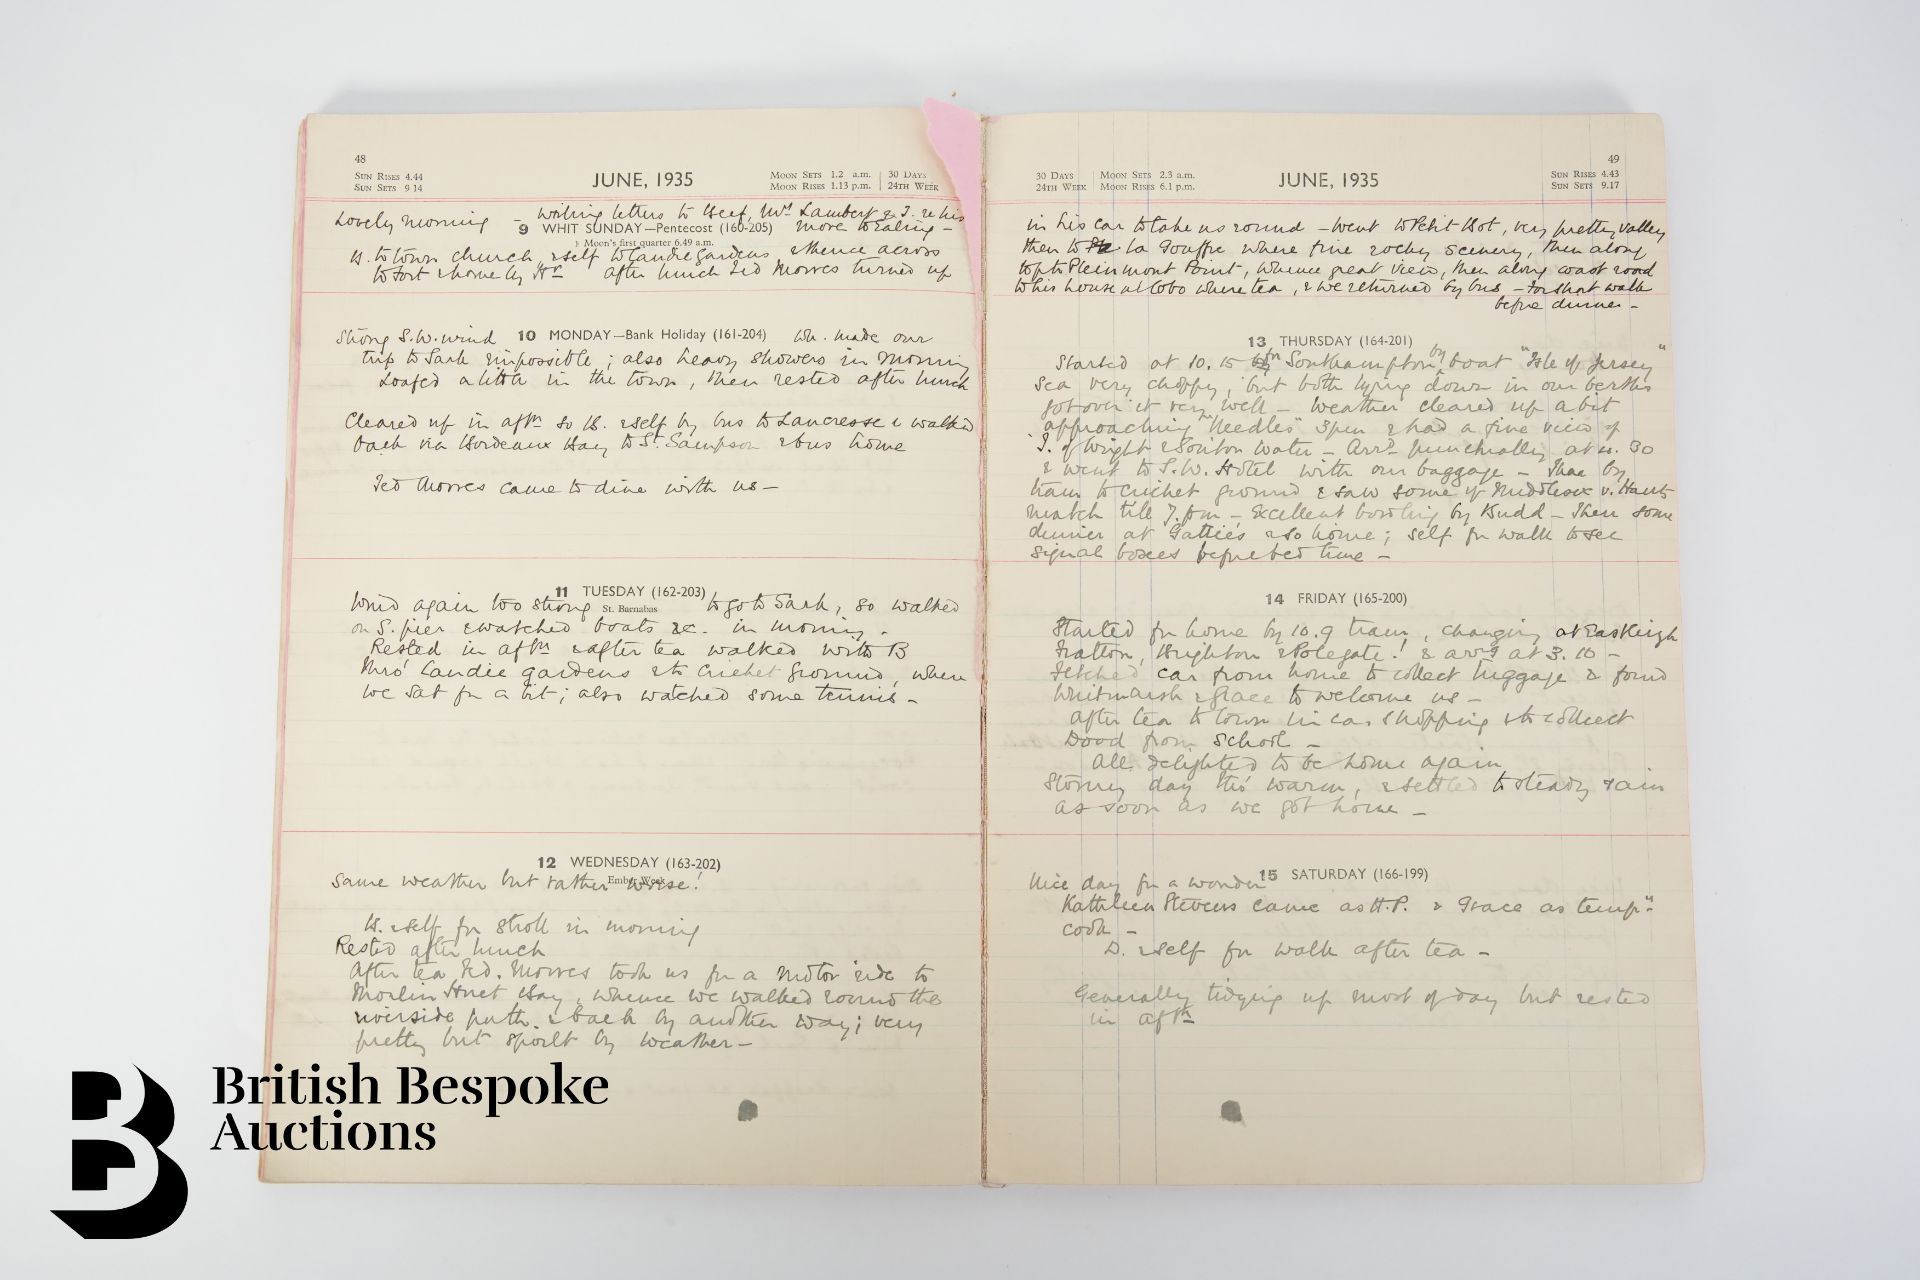 48
SUN RISES 4.44
SUN SETS 9 14
JUNE, 1935
MOON SETS 1.2 a.m.
MOON RISES 1.13 p.m.
30 DAYS
24TH WEEK
Lovely morning – writing letters to Geof, Mrs Lambert & J. re his
9 WHIT SUNDAY—Pentecost (160-205) move to Ealing –
☽ Moon's first quarter 6.49 a.m.
B. to town church, & self to Candie Gardens & thence across
to Fort & home by Hr after lunch Ted Morres turned up
Strong S.W. wind 10 MONDAY—Bank Holiday (161-204) wh. made our
trip to Sark impossible; also heavy showers in morning
Loafed a little in the town, then rested after lunch
Cleared up in aftn so B. & self by bus to Lancresse & walked
back via Bordeaux Bay to St. Sampson & bus home
Ted Morres came to dine with us –
11 TUESDAY (162-203)
Wind again too strong St. Barnabas to go to Sark, so walked
on S. pier & watched boats &c. in morning.
Rested in aftn & after tea walked with B
thro' Candie gardens & to Cricket Ground, where
we sat for a bit; also watched some tennis –
12 WEDNESDAY (163-202)
Same weather but rather worse!
Ember Week
B. & self for stroll in morning
Rested after lunch
After tea Ted. Morres took us for a motor ride to
Moulin Huet Bay, whence we walked round the
path & back by another way; very
pretty but spoilt by weather –
30 DAYS
24TH WEEK
MOON SETS 2.3 a.m.
MOON RISES 6.1 p.m.
JUNE, 1935
49
SUN RISES 4.43
SUN SETS 9.17
in his car to take us round – went to Petit Bot, very pretty valley
then to La Gouffre where fine rocky scenery, then along
top to Pleinmont Point, whence great view, then along coast road
to his house at Cobo where tea, & we returned by bus – For short walk
before dinner –
13 THURSDAY (164-201)
Started at 10.15 for Southampton by boat "Isle of Jersey"
Sea very choppy, but both lying down in our berths
got over it very well – weather cleared up a bit
approaching "Needles" 3pm & had a fine view of
I. of Wight & Soton water – Arrd punctually at 4.30
& went to S.W. Hotel with our baggage – Thence by
tram to cricket ground & saw some of Middlesex v. Hants
match till 7. pm – Excellent bowling by Budd – Then some
dinner at Gattie's & so home; self for walk to see
signal boxes before bed time –
14 FRIDAY (165-200)
Started for home by 10.9 train, changing at Eastleigh
Fratton, Brighton & Polegate! & arrd at 3.10 –
Fetched car from home to collect luggage & found
Whitmarsh & Grace to welcome us –
After tea to town in car shopping & to collect
from school –
All delighted to be home again
Stormy day tho' warm, & settled to steady rain
as soon as we got home –
Nice day for a wonder 15 SATURDAY (166-199)
Kathleen Stevens came as H.P. & Grace as tempy
cook –
D. & self for walk after tea –
Generally tidying up most of day but rested
in aftn
British Bespoke
Auctions